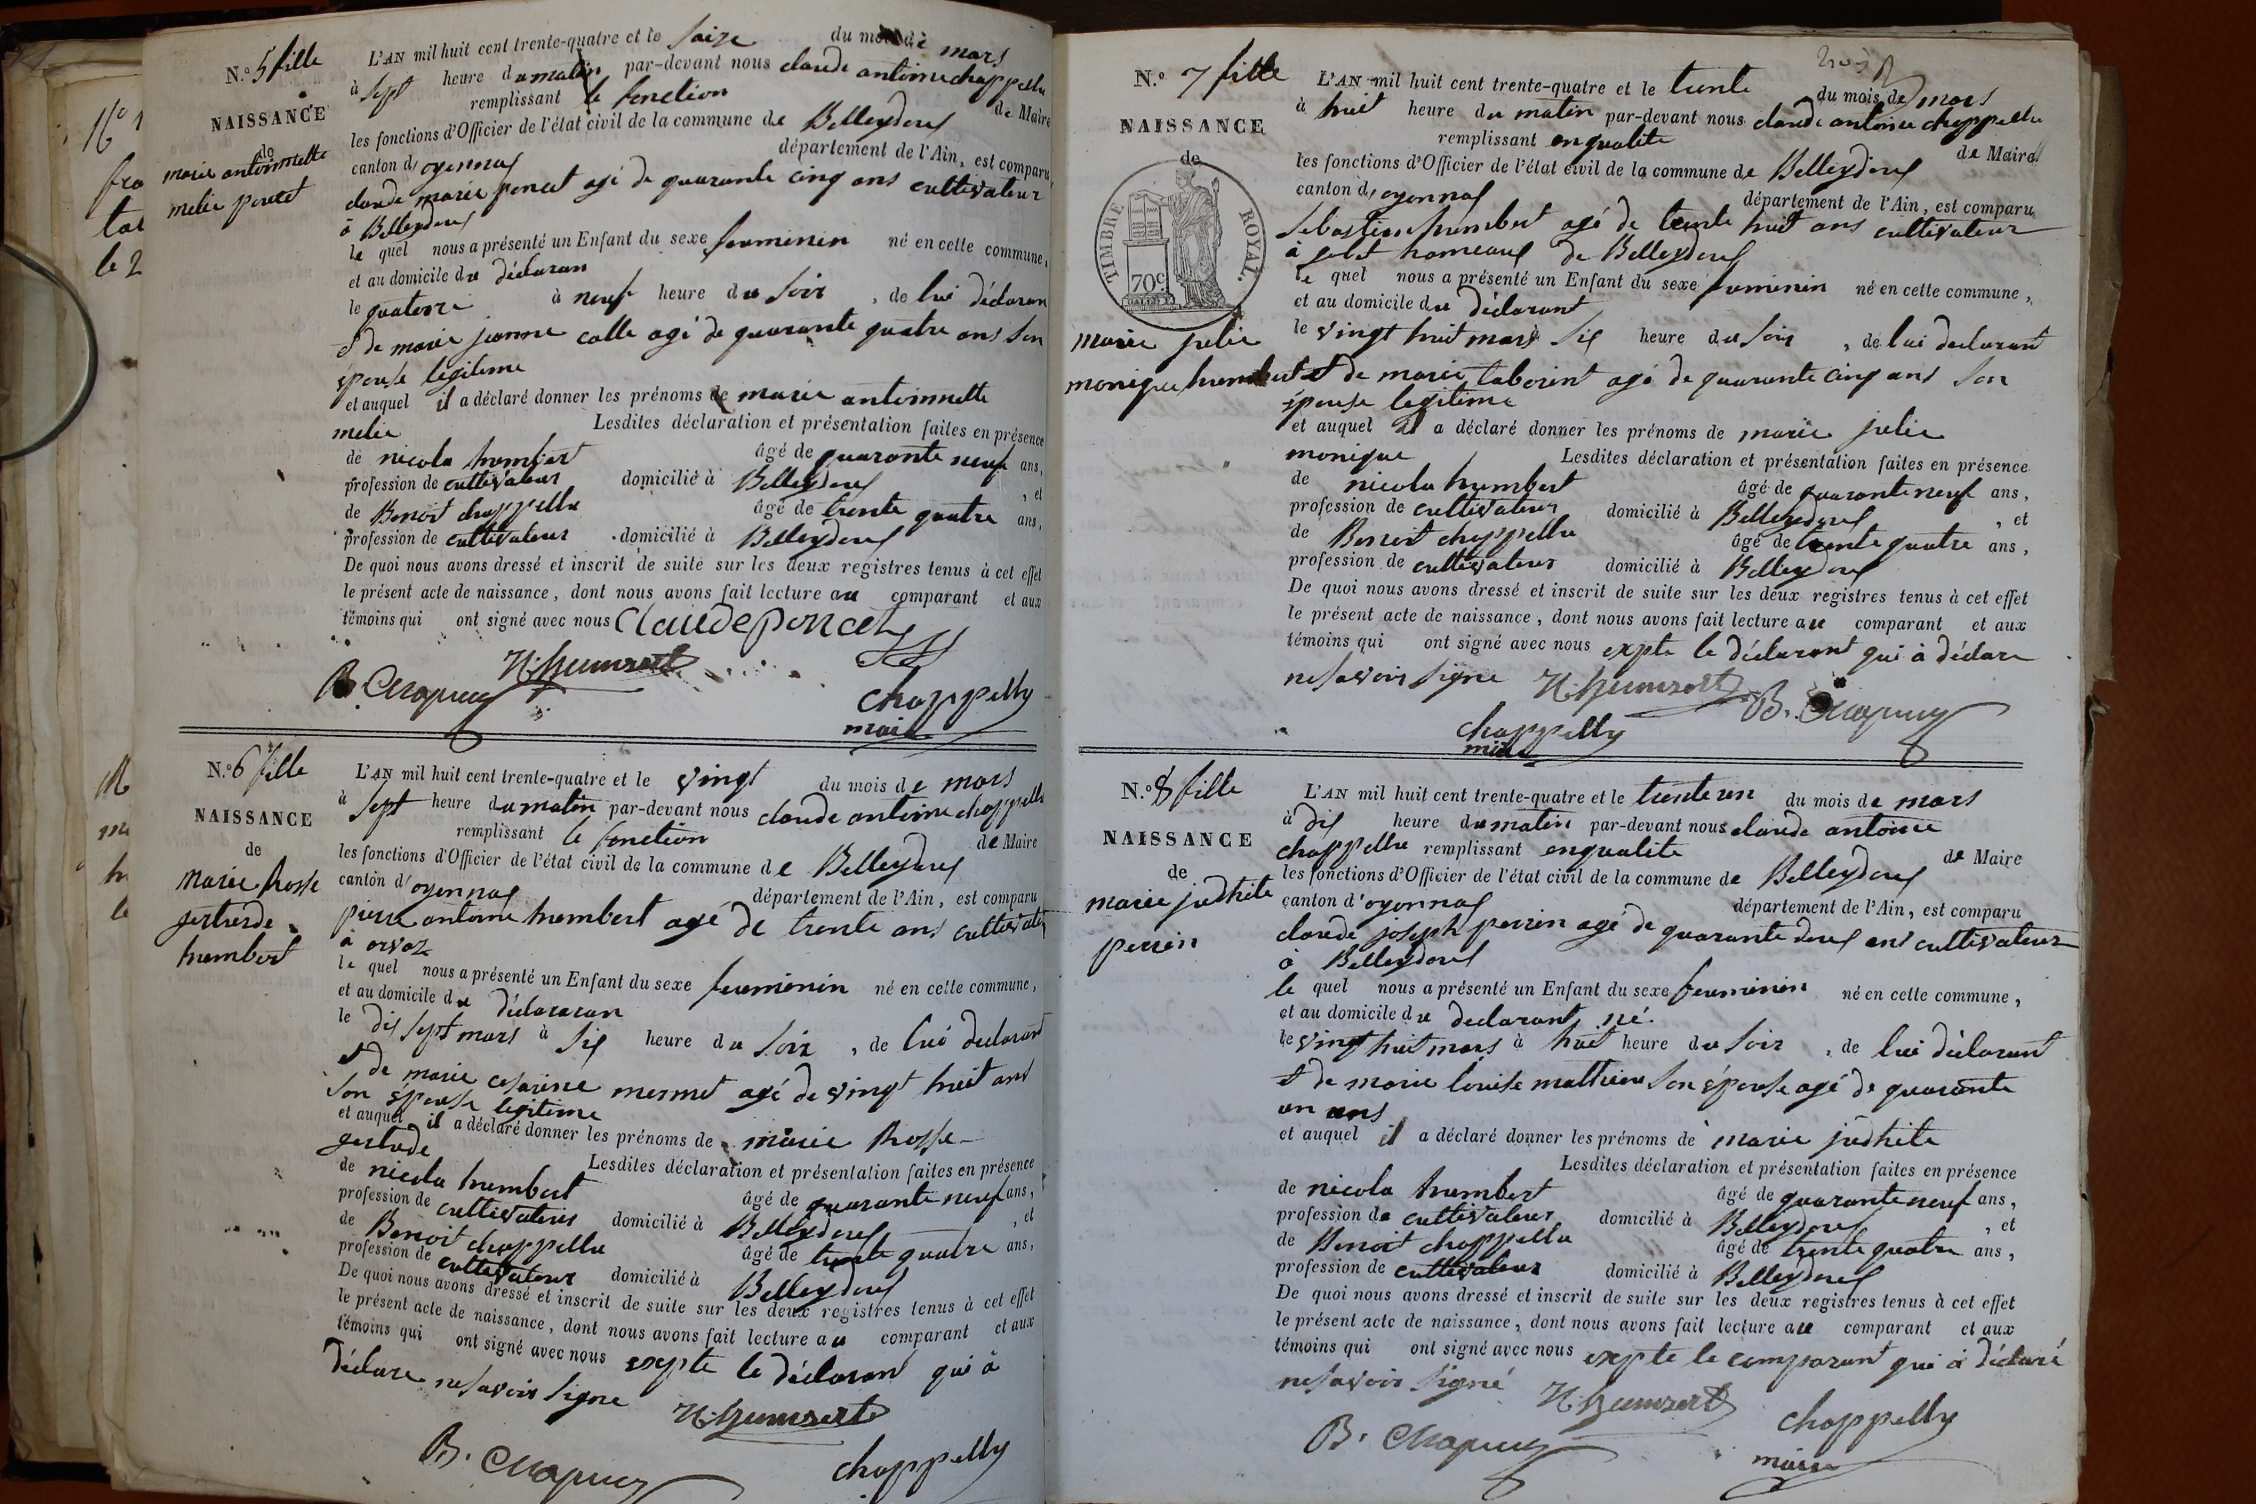 N.º 5 fille
NAISSANCE
de
marie antoinnette
melie poncet
L'AN mil huit cent trente-quatre et le saize du mois de mars
à sept heure du matin par-devant nous claude antoine chappellu
remplissant le fonction de Maire
les fonctions d'Officier de l'état civil de la commune de Belleydoux
canton d'oyonnax département de l'Ain, est comparu
claude marie poncet agé de quarante cinq ans cultivateur
à Belleydoux
le quel nous a présenté un Enfant du sexe feuminin né en cette commune,
et au domicile du déclaran
le quatorze à neuf heure du soir, de lui déclaran
et de marie jeanne calle agé de quarante quatre ans son
épouse légitime
et auquel il a déclaré donner les prénoms de marie antoinnette
melie Lesdites déclaration et présentation faites en présence
de nicola humbert âgé de quarante neuf ans,
profession de cultivateur domicilié à Belleydoux, et
de Benoit chappellu âgé de trente quatre ans,
profession de cultivateur domicilié à Belleydoux
De quoi nous avons dressé et inscrit de suite sur les deux registres tenus à cet effet
le présent acte de naissance, dont nous avons fait lecture au comparant et aux
témoins qui ont signé avec nous Claude poncet
N. humbert
B. Chapuy
chappelly
maire
N.º 6 fille
NAISSANCE
de
marie Rosse
gertrude
humbert
L'AN mil huit cent trente-quatre et le vingt du mois de mars
à sept heure du matin par-devant nous claude antoine chappellu
remplissant le fonction de Maire
les fonctions d'Officier de l'état civil de la commune de Belleydoux
canton d'oyonnax département de l'Ain, est comparu
pierre antoine humbert agé de trente ans cultivateur
à orvaz
le quel nous a présenté un Enfant du sexe feuminin né en cette commune,
et au domicile du déclaran
le dix sept mars à six heure du soir, de lui declarant
et de marie cesarine mermet agé de vingt huit ans
son épouse legitime
et auquel il a déclaré donner les prénoms de marie Rosse
gertude Lesdites déclaration et présentation faites en présence
de nicola humbert âgé de quarante neuf ans,
profession de cultivateur domicilié à Belleydoux, et
de Benoit chappellu âgé de trente quatre ans,
profession de cultivateur domicilié à Belleydoux
De quoi nous avons dressé et inscrit de suite sur les deux registres tenus à cet effet
le présent acte de naissance, dont nous avons fait lecture au comparant et aux
témoins qui ont signé avec nous expte le déclaran qui à
déclare ne savoir signe
N. humbert
B. Chapuy
chappelly
N.º 7 fille
NAISSANCE
de
TIMBRE ROYAL.
70c
marie julie
monique humbert
L'AN mil huit cent trente-quatre et le trente du mois de mars
à huit heure du matin par-devant nous claude antoine chappellu
remplissant enqualite de Maire
les fonctions d'Officier de l'état civil de la commune de Belleydoux
canton d'oyonnax département de l'Ain, est comparu
sebastien humbert agé de trente huit ans cultivateur
à hameaux de Belleydoux
le quel nous a présenté un Enfant du sexe feuminin né en cette commune,
et au domicile du déclarant
le vingt huit mars à six heure du soir, de lui declarant
et de marie taborint agé de quarante cinq ans son
épouse legitime
et auquel il a déclaré donner les prénoms de marie julie
monique Lesdites déclaration et présentation faites en présence
de nicola humbert âgé de quarante neuf ans,
profession de cultivateur domicilié à Belleydoux, et
de Benoit chappellu âgé de trente quatre ans,
profession de cultivateur domicilié à Belleydoux
De quoi nous avons dressé et inscrit de suite sur les deux registres tenus à cet effet
le présent acte de naissance, dont nous avons fait lecture au comparant et aux
témoins qui ont signé avec nous expte le déclarant qui à déclare
ne savoir signe N. humbert B. Chapuy
chappelly
maire
N.º 8 fille
NAISSANCE
de
marie judhite
perrin
L'AN mil huit cent trente-quatre et le trente un du mois de mars
à dix heure du matin par-devant nous claude antoine
chappellu remplissant enqualite de Maire
les fonctions d'Officier de l'état civil de la commune de Belleydoux
canton d'oyonnax département de l'Ain, est comparu
claude joseph perrin agé de quarante deux ans cultivateur
à Belleydoux
le quel nous a présenté un Enfant du sexe feuminin né en cette commune,
et au domicile du declarant né.
le vingt huit mars à huit heure du soir, de lui déclarant
et de marie louise mathieu son épouse agé de quarante
un ans
et auquel il a déclaré donner les prénoms de marie judhite
Lesdites déclaration et présentation faites en présence
de nicola humbert âgé de quarante neuf ans,
profession de cultivateur domicilié à Belleydoux, et
de Benoit chappellu âgé de trente quatre ans,
profession de cultivateur domicilié à Belleydoux
De quoi nous avons dressé et inscrit de suite sur les deux registres tenus à cet effet
le présent acte de naissance, dont nous avons fait lecture au comparant et aux
témoins qui ont signé avec nous expte le comparant qui à déclaré
ne savoir signé N. humbert
B. Chapuy
chappelly
maire